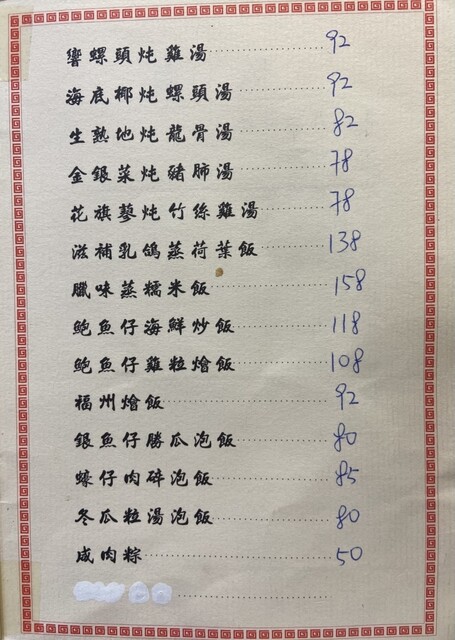 響螺頭炖雞湯 92
海底椰炖螺頭湯 92
生熟地炖龍骨湯 82
金銀菜炖豬肺湯 78
花旗蔘炖竹絲雞湯 78
滋補乳鴿蒸荷葉飯 138
臘味蒸糯米飯 158
鮑魚仔海鮮炒飯 118
鮑魚仔雞粒燴飯 108
福州燴飯 92
銀魚仔勝瓜泡飯 80
蠔仔肉碎泡飯 85
冬瓜粒湯泡飯 80
咸肉粽 50